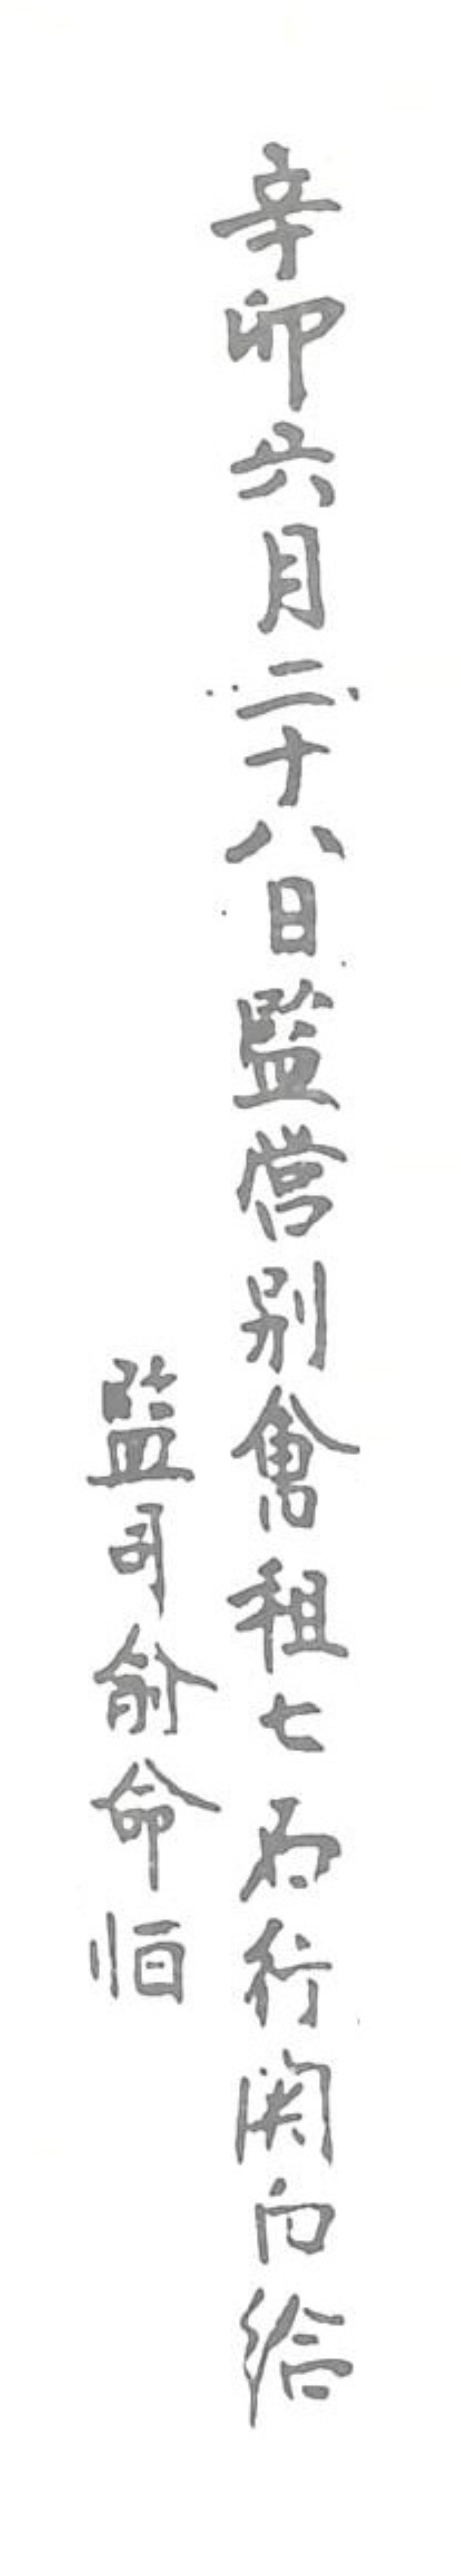 辛卯六月二十八日監營別會租七石行関向給
監司兪命恒